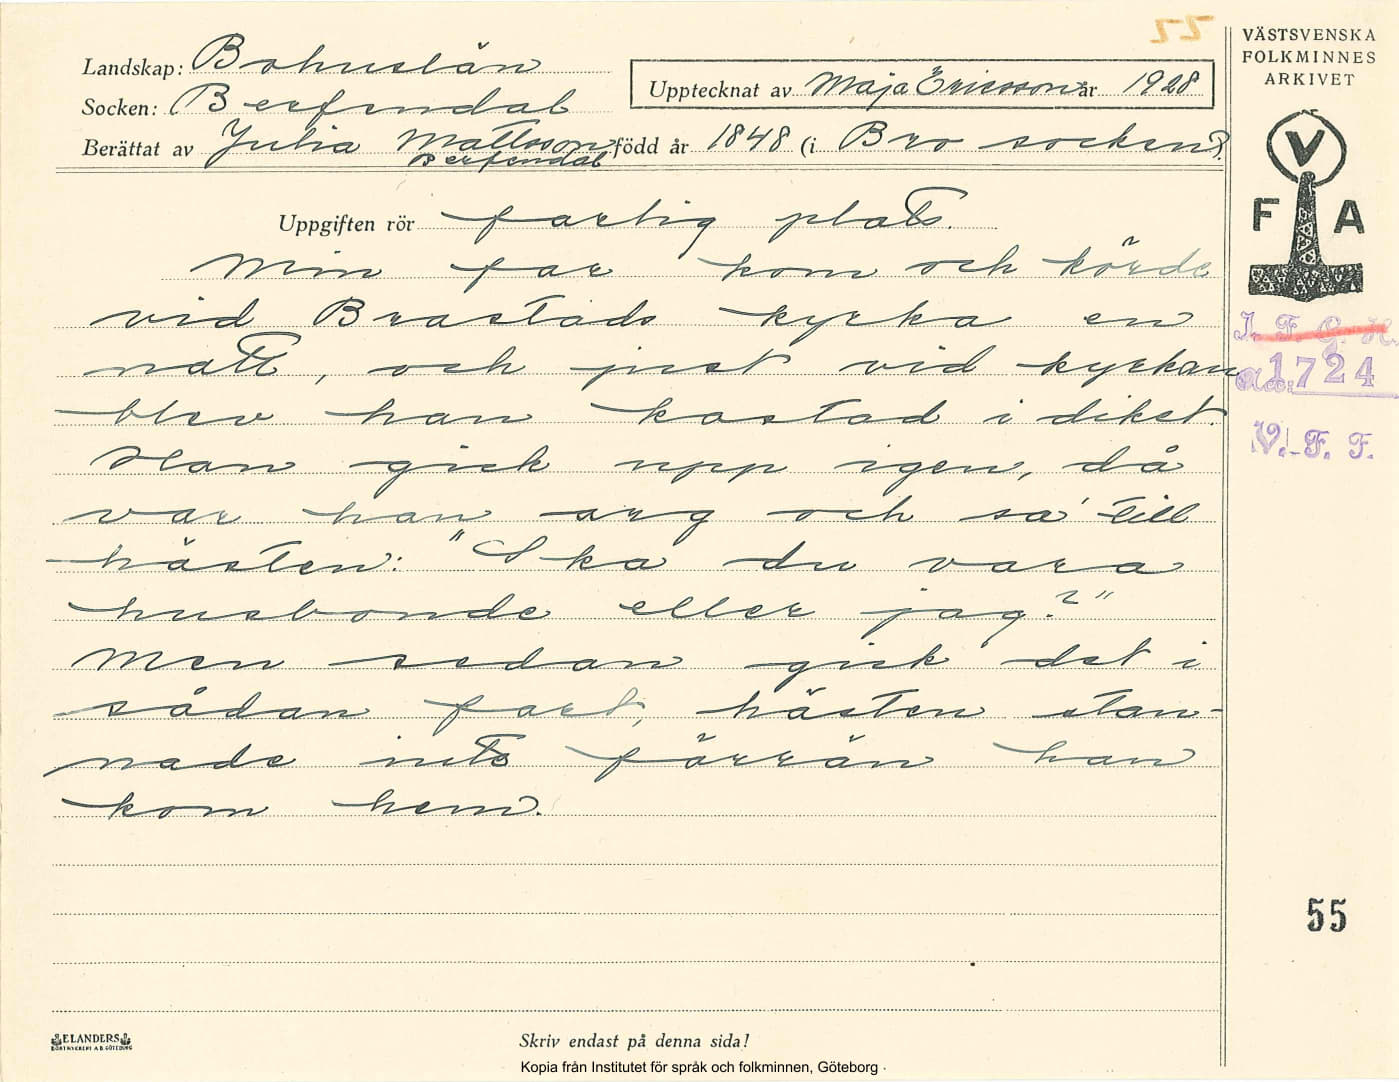 55
VÄSTSVENSKA
FOLKMINNES
ARKIVET
Landskap: Bohuslän
Socken: Berfendal
Upptecknat av Maja Ericsson år 1928
Berättat av Julia Mattsson född år 1848 (i Bro socken).
Berfendal
V
F A
Uppgiften rör farlig plats.
Min far kom och körde
vid Brastads kyrka en
natt, och just vid kyrkan
blev han kastad i diket.
Han gick upp igen, då
var han arg och sa' till
hästen: "Ska du vara
husbonde eller jag?"
Men sedan gick det i
sådan fart, hästen stan-
nade inte förrän han
kom hem.
I. F. G. H.
Acc: 1724
V. F. F.
55
ELANDERS
BOKTRYCKERI A.B. GÖTEBORG
Skriv endast på denna sida!
Kopia från Institutet för språk och folkminnen, Göteborg